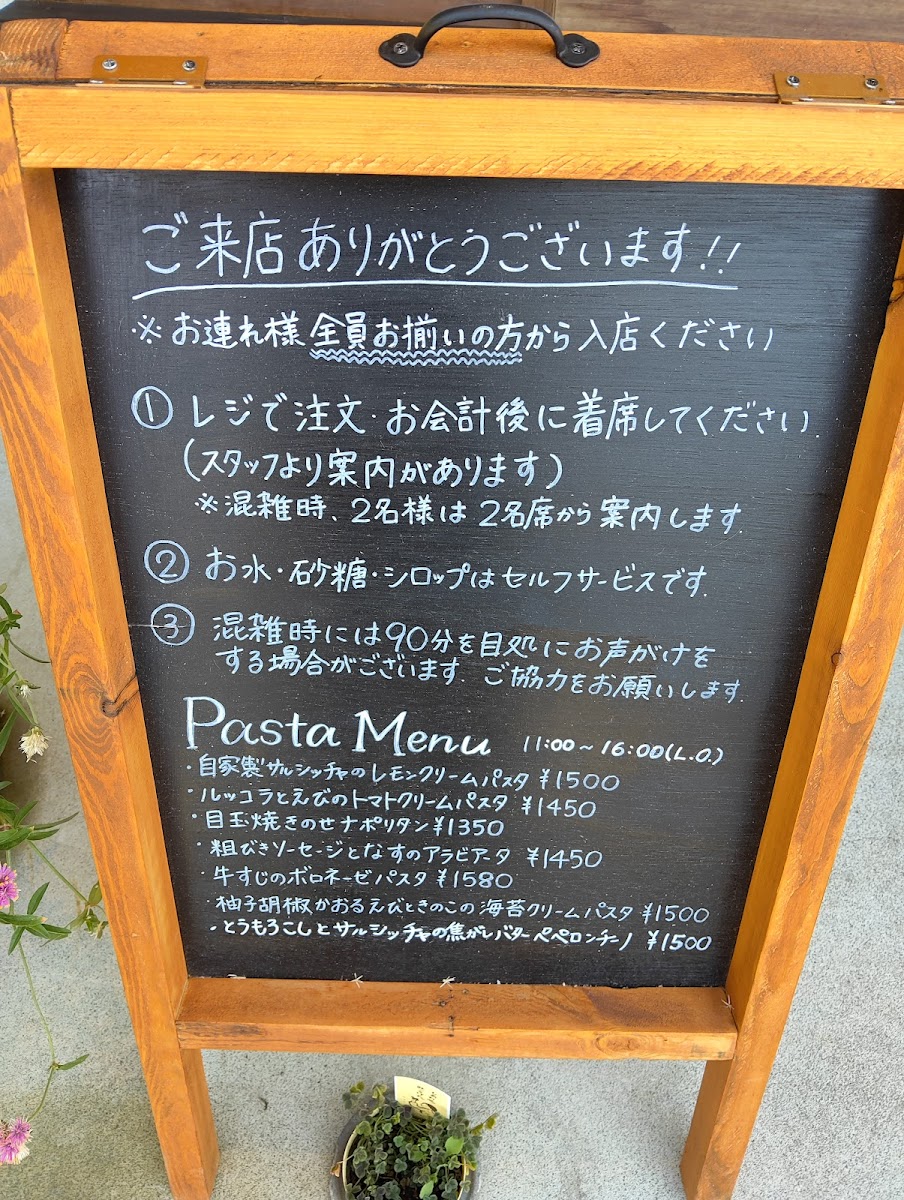 ご来店ありがとうございます!!
※お連れ様全員お揃いの方から入店ください
① レジで注文・お会計後に着席してください.
(スタッフより案内があります)
※混雑時、2名様は2名席から案内します.
② お水・砂糖・シロップはセルフサービスです.
③ 混雑時には90分を目処にお声がけを
する場合がございます. ご協力をお願いします.
Pasta Menu 11:00~16:00(L.O.)
・自家製サルシッチャのレモンクリームパスタ ¥1500
・ルッコラとえびのトマトクリームパスタ ¥1450
・目玉焼きのせナポリタン ¥1350
・粗びきソーセージとなすのアラビアータ ¥1450
・牛すじのボロネーゼパスタ ¥1580
・柚子胡椒かおるえびときのこの海苔クリームパスタ ¥1500
・とうもろこしとサルシッチャの焦がしバターペペロンチーノ ¥1500